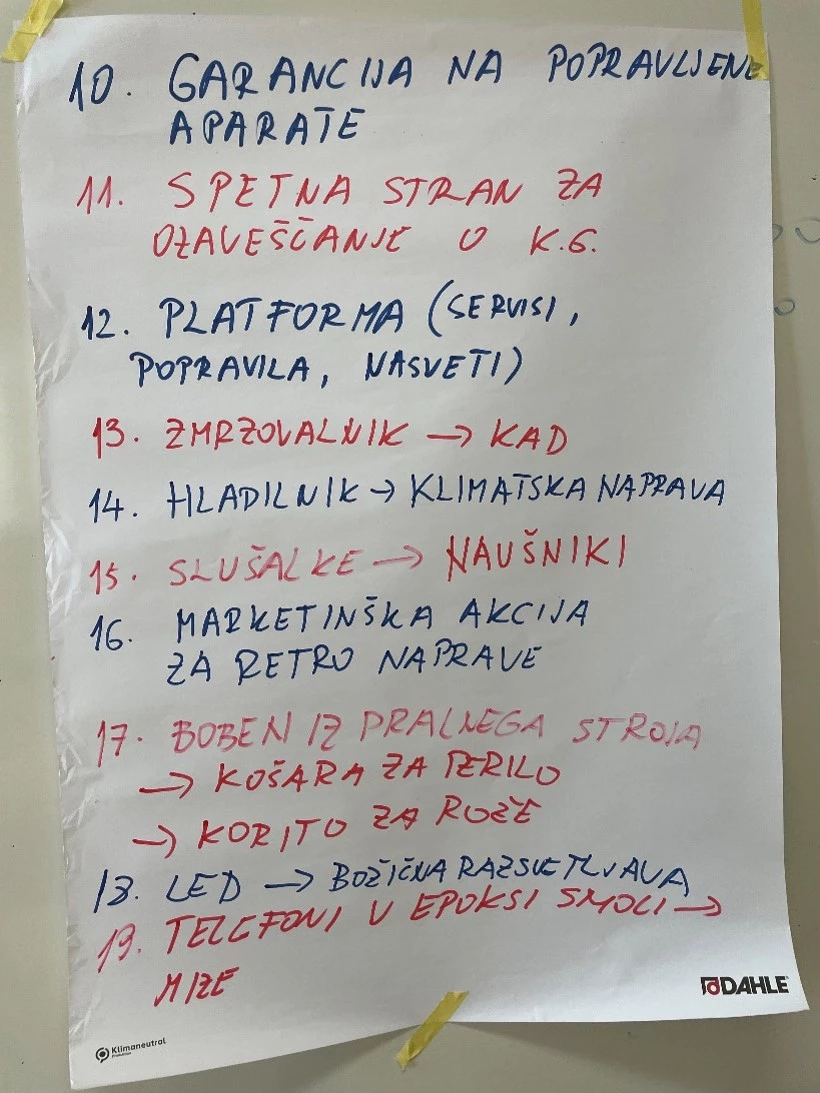 10. GARANCIJA NA POPRAVLJENE
APARATE
11. SPETNA STRAN ZA
OZAVEŠČANJE O K.G.
12. PLATFORMA (SERVISI,
POPRAVILA, NASVETI)
13. ZMRZOVALNIK → KAD
14. HLADILNIK → KLIMATSKA NAPRAVA
15. SLUŠALKE → NAUŠNIKI
16. MARKETINŠKA AKCIJA
ZA RETRO NAPRAVE
17. BOBEN IZ PRALNEGA STROJA
→ KOŠARA ZA PERILO
→ KORITO ZA ROŽE
18. LED → BOŽIČNA RAZSVETLJAVA
19. TELEFONI V EPOKSI SMOLI →
MIZE
DAHLE
Klimaneutral